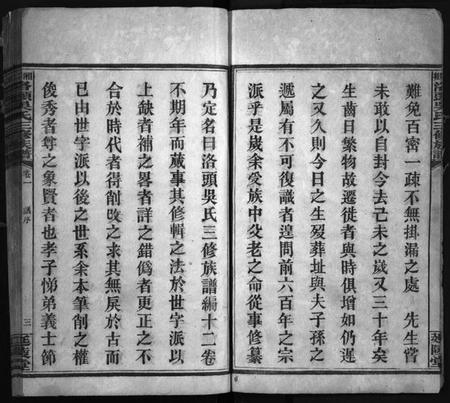 難免百密一疏不無掛漏之處　先生嘗
未敢以自封今去己未之歲又三十年矣
生齒日繁物故遷徙者與時俱增如仍遲
之又久則今日之生歿葬址與夫子孫之
遞屬有不可復識者遑問前六百年之宗
派乎是歲余受族中父老之命從事修纂
乃定名曰洛頭吳氏三修族譜編十二卷
不期年而蕆事其修輯之法於世字派以
上缺者補之畧者詳之錯僞者更正之不
合於時代者得削改之求其無戾於古而
已由世字派以後之世系余本筆削之權
俊秀者尊之象賢者也孝子悌弟義士節
洛頭吳氏三修族譜
卷一
三
延陵堂